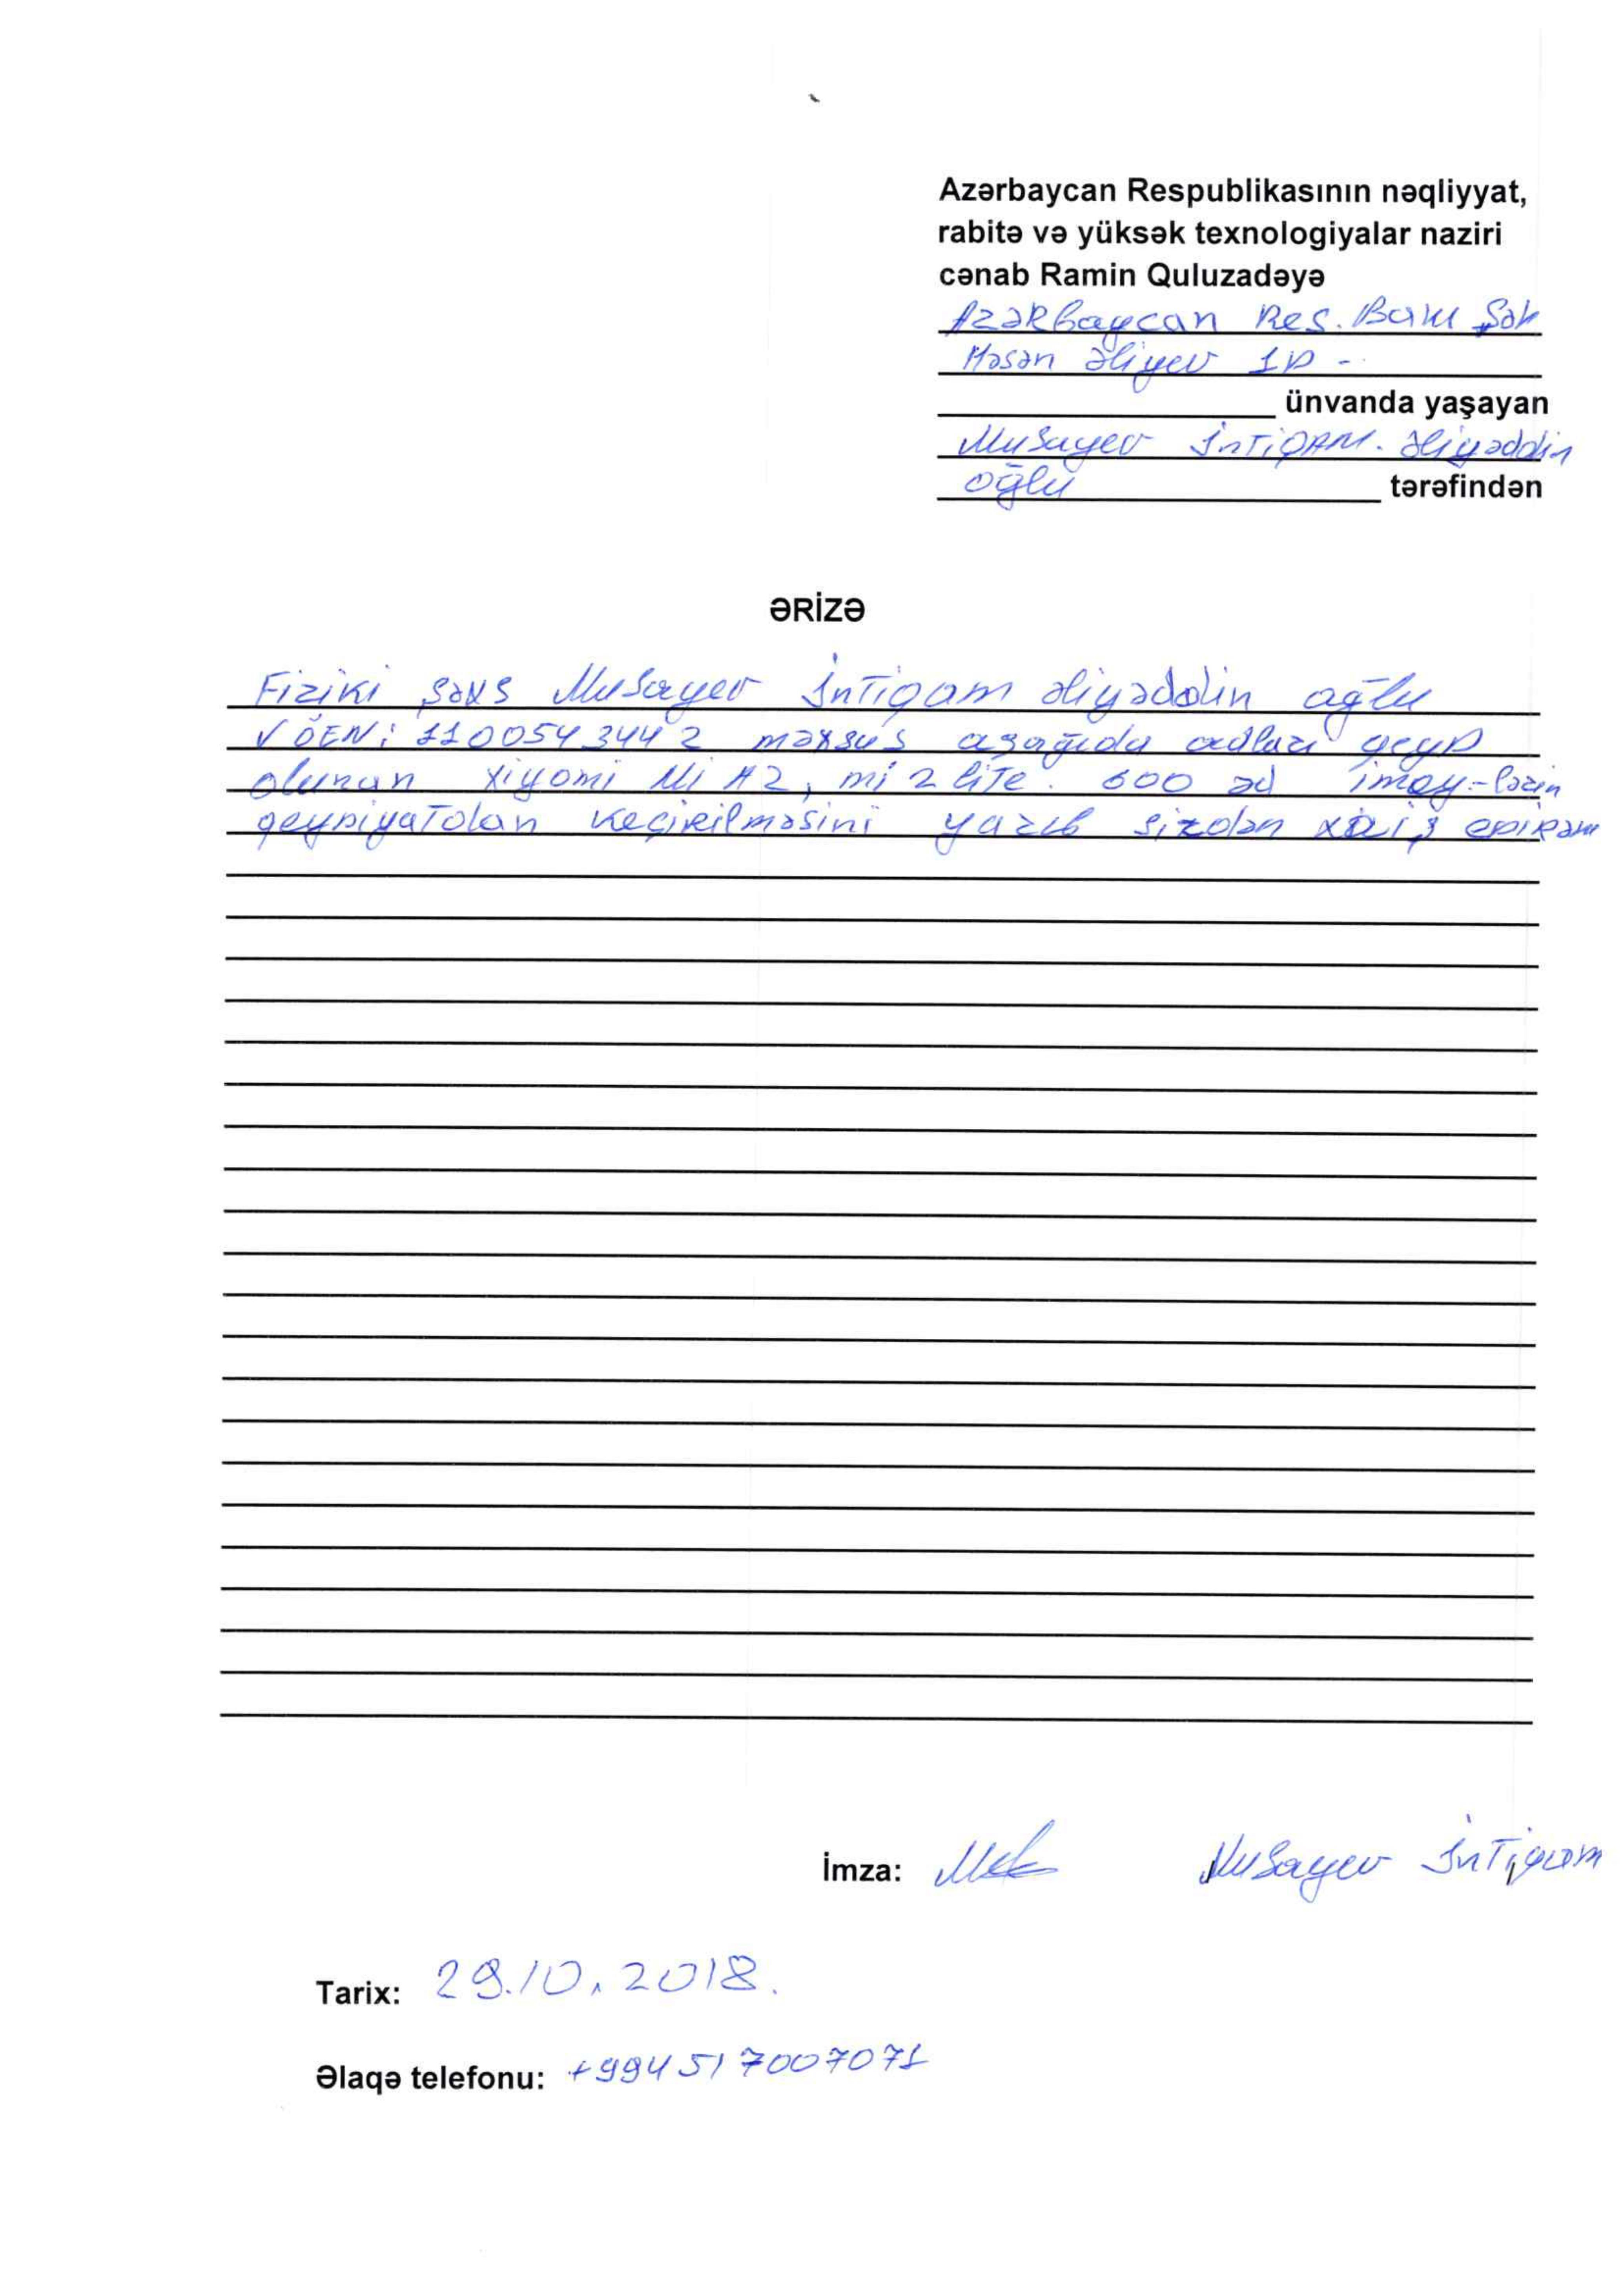 Azərbaycan Respublikasının nəqliyyat,
rabitə və yüksək texnologiyalar naziri
cənab Ramin Quluzadəyə
Azərbaycan Res. Bakı Şəh
Həsən Əliyev 1D -
ünvanda yaşayan
Musayev İntiqam. Əliyəddin
oğlu tərəfindən
ƏRİZƏ
Fiziki şəxs Musayev İntiqam Əliyəddin oğlu
VÖEN: 1100543442 məxsus aşağıda adları qeyd
olunan Xiyomi Mi A2, mi 2 lite. 600 əd imey-lərin
qeydiyatdan keçirilməsini yazıb sizdən xaiş edirəm
İmza: Musayev İntiqam
Tarix: 29.10.2018.
Əlaqə telefonu: +994517007071